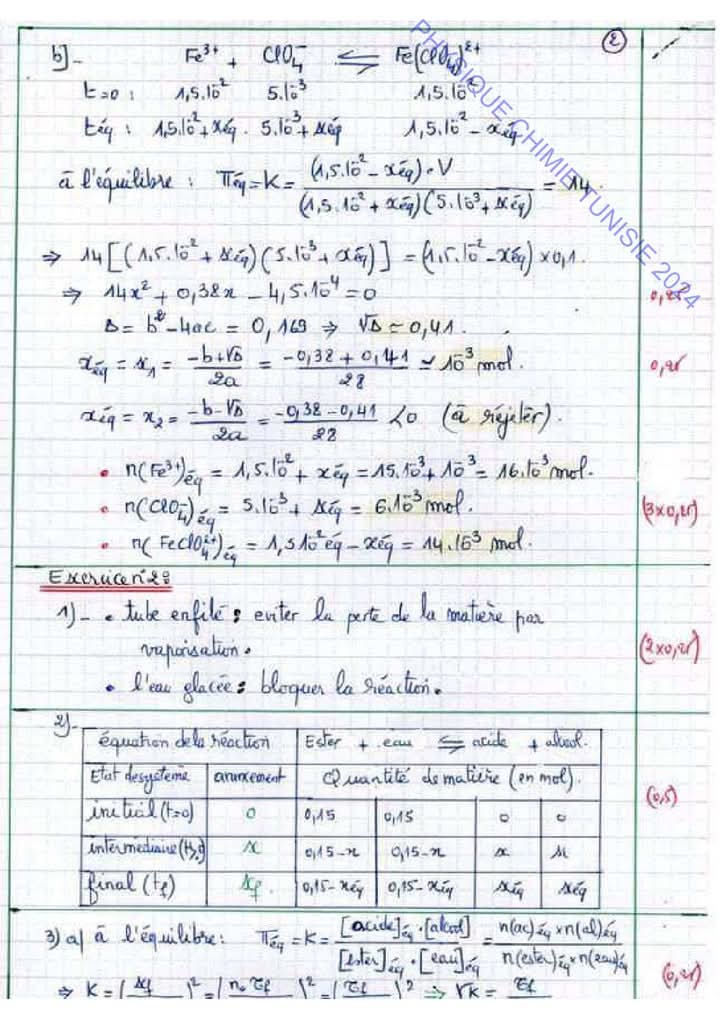 ②
b)- Fe³⁺ + ClO₄⁻ ⇌ Fe(ClO₄)²⁺
t=0 : 1,5.10⁻² 5.10⁻³ 1,5.10⁻²
téq : 1,5.10⁻²+xéq . 5.10⁻³+xéq 1,5.10⁻²-xéq
à l'équilibre : πéq = K = (1,5.10⁻² - xéq).V / (1,5.10⁻² + xéq)(5.10⁻³ + xéq) = 14.
⇒ 14[(1,5.10⁻² + xéq)(5.10⁻³ + xéq)] = (1,5.10⁻² - xéq) × 0,1.
⇒ 14x² + 0,38x - 4,5.10⁻⁴ = 0
Δ = b² - 4ac = 0,169 ⇒ √Δ ≃ 0,41.
xéq = x₁ = (-b+√Δ)/2a = (-0,38 + 0,41)/28 ≃ 10⁻³ mol. 0,25
xéq = x₂ = (-b-√Δ)/2a = (-0,38 - 0,41)/28 < 0 (à réjéter).
• n(Fe³⁺)éq = 1,5.10⁻² + xéq = 15.10⁻³ + 10⁻³ = 16.10⁻³ mol.
• n(ClO₄⁻)éq = 5.10⁻³ + xéq = 6.10⁻³ mol. (3x0,25)
• n(FeClO₄²⁺)éq = 1,510⁻²éq - xéq = 14.10⁻³ mol.
Exercice n°2:
1)- • tube enfilé : eviter la perte de la matière par
vaporisation.
(2x0,25)
• l'eau glacée : bloquer la réaction.
2)-
équation de la réaction Ester + eau ⇌ acide + alcool.
Etat de système avancement Quantité de matière (en mol).
(0,5)
initial (t=0) 0 0,15 0,15 0 0
intermédiaire (t>0) x 0,15-x 0,15-x x x
final (tf) xf 0,15-xéq 0,15-xéq xéq xéq
3) a) à l'équilibre : πéq = K = [acide]éq.[alcool] / [ester]éq.[eau]éq = n(ac)éq x n(al)éq / n(ester)éq x n(eau)éq
(0,25)
PHYSIQUE CHIMIE TUNISIE 2024